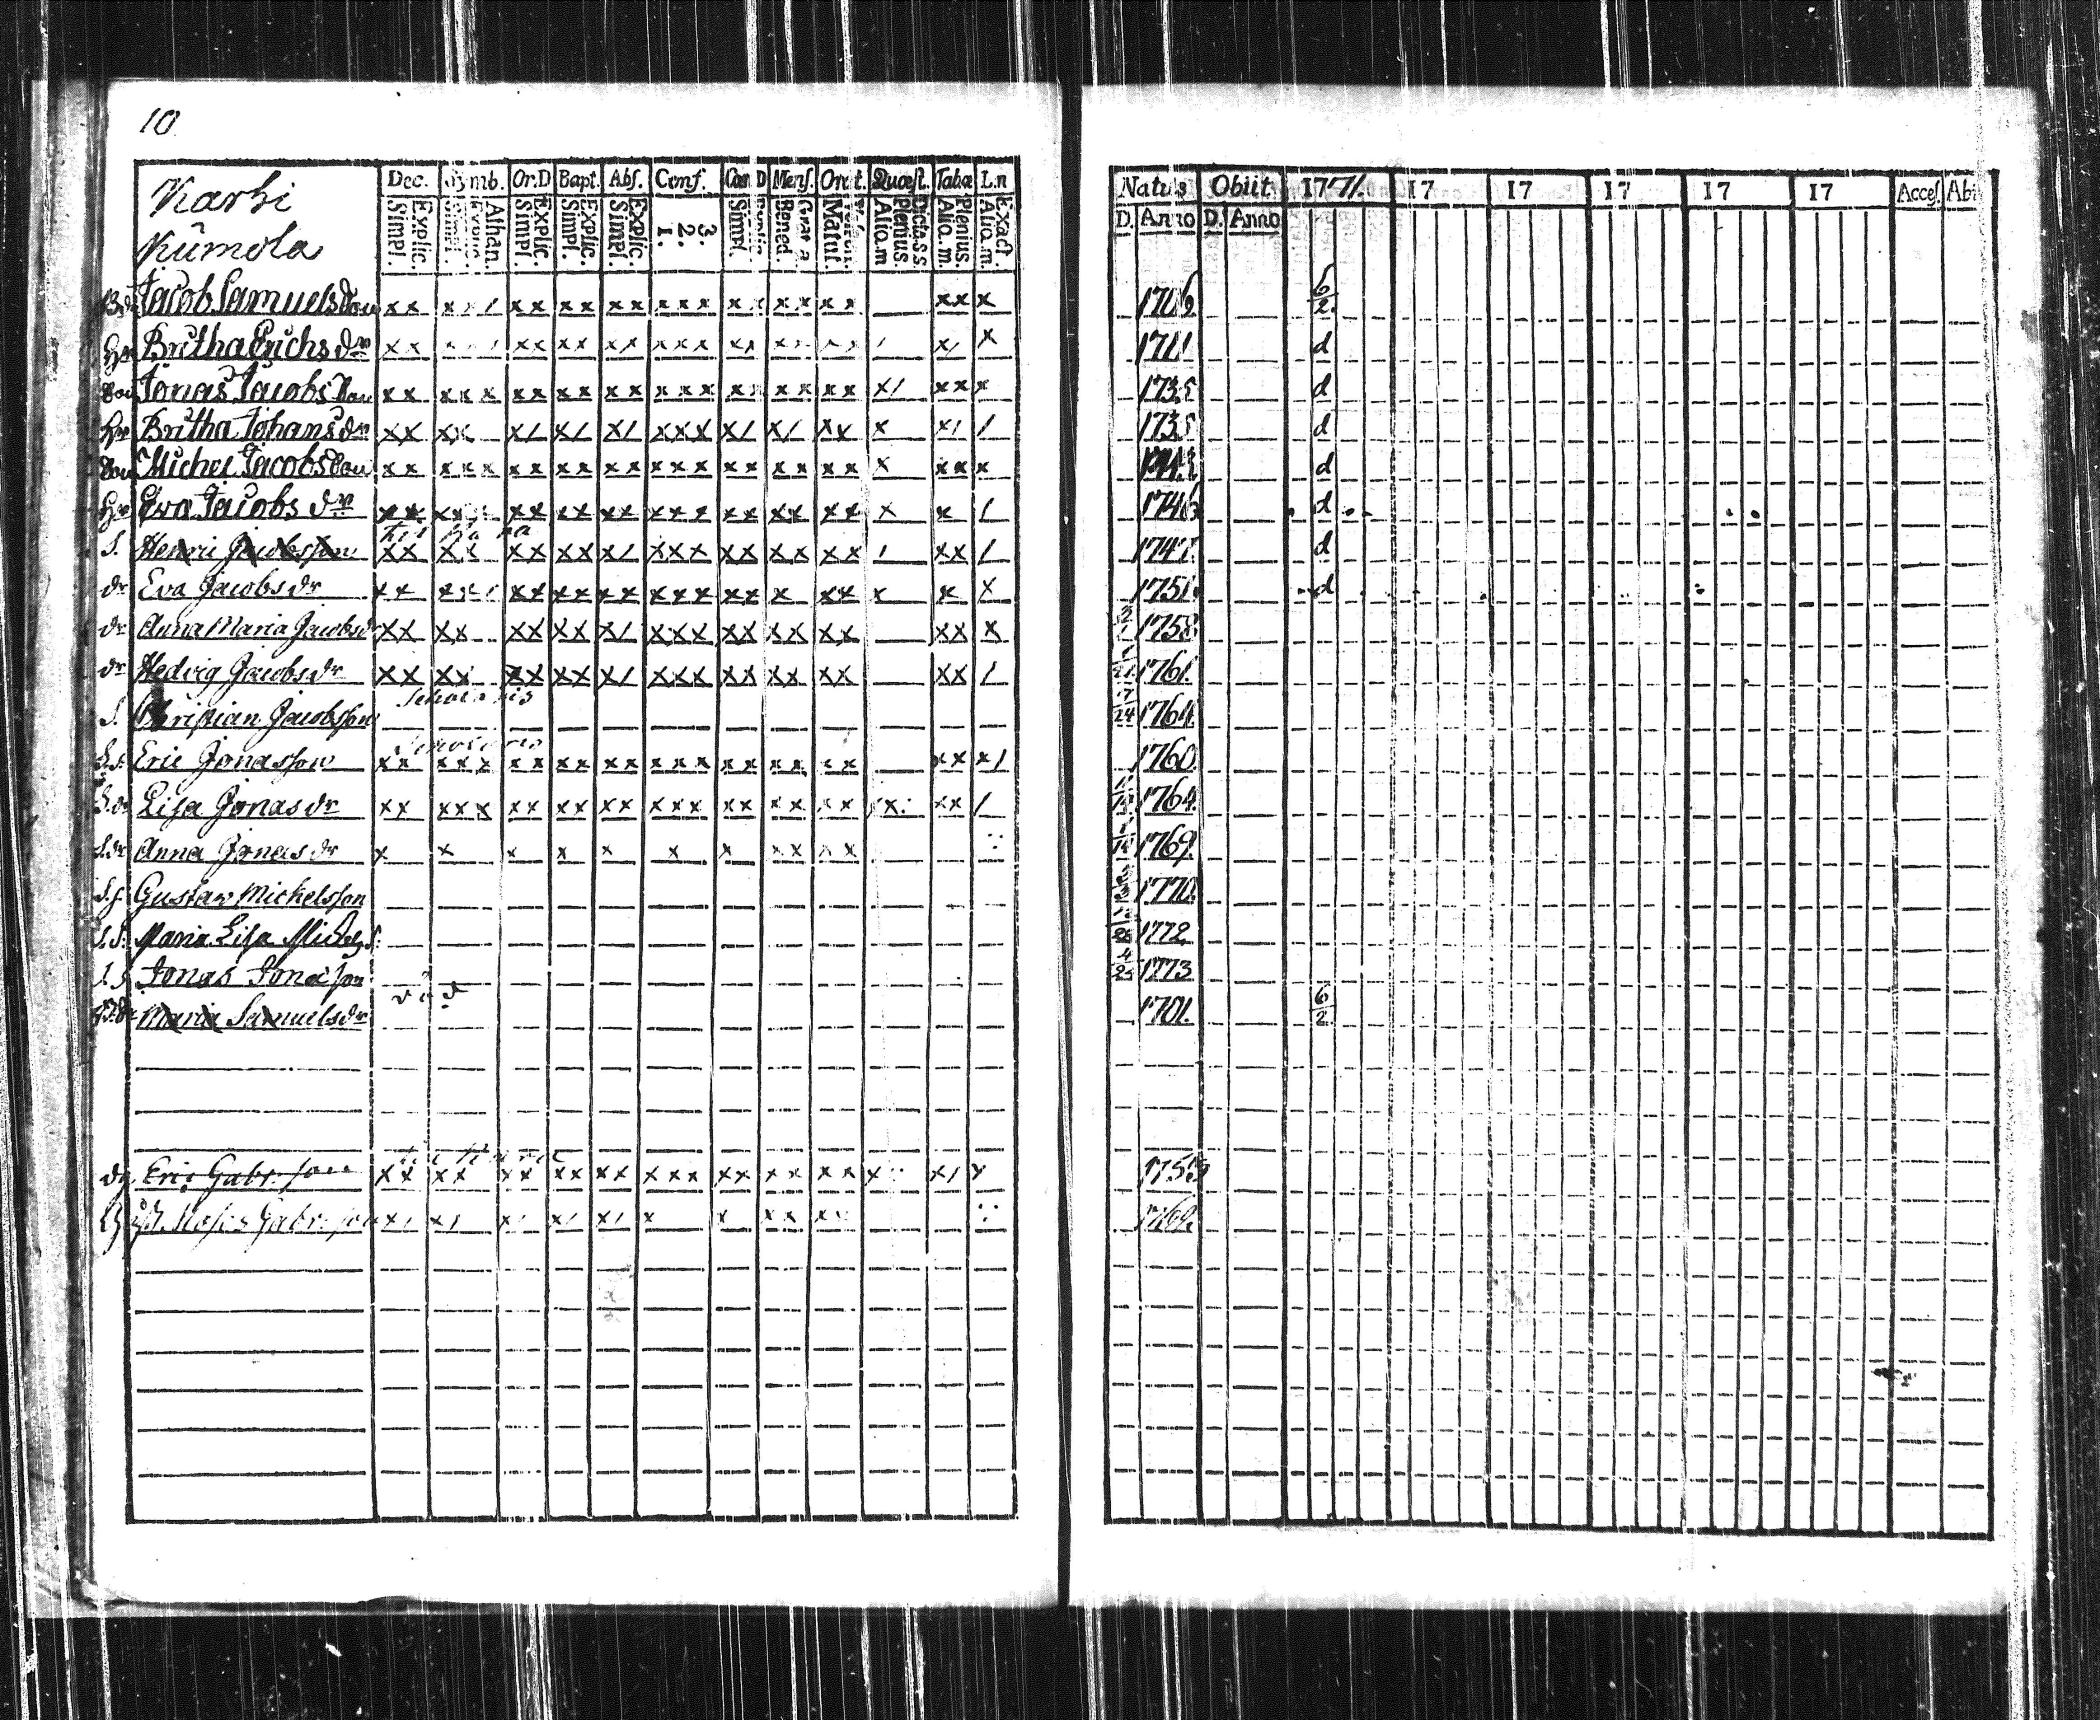 10
Karsi
Kumola
Dec. Symb. Or.D Bapt. Abs. Conf. Mens. Quæst. Tabæ L.n
Simpl. Explic. Athan. Simpl. Explic. Simpl. Explic. Simpl. Explic. 1. 2. 3. Simpl. Bened. Matut. Alio.m Plenius. Alio.m. Plenius. Alio.m. Exact.
Natus Obiit. 1771. 17 17 17 17 17 Acces. Abi
D. Anno D. Anno
Jacob Samuelsson xx xx/ xx xx xx xxx xx xx xx xx x 1706 6/2
Hu Britha Erichs dr xx xx xx x/ xxx x/ x 1711 d
Son Jonas Jacobsson xx xxx xx xx xx xxx xx xx xx x/ xx x 1735 d
Hu Britha Johans dr xx xx x/ x/ x/ xxx x/ x/ xx x x/ / 1735 d
Son Michel Jacobsson xx xxx xx xx xx xxx xx xx xx x xx x d
Hu Eva Jacobs dr xx xx xx xx xx xxx xx xx xx x x / 1746 d
S. Henric Jacobsson xx xx xx xx x/ xxx xx xx xx / xx / 1747 d
dr Eva Jacobs dr xx xx/ xx xx xx xxx xx x xx x x x 1751. d
dr Anna Maria Jacobs d xx xx xx xx x/ xxx xx xx xx xx x 1758
dr Hedvig Jacobs dr xx xx xx xx x/ xxx xx xx xx xx / 1761.
Scholaris
S. Christian Jacobsson 7/24 1764.
Scholaris
S.s. Eric Jonasson xx xxx xx xx xx xxx xx xx xx xx x/ 1760.
S.dr Lisa Jonas dr xx xxx xx xx xx xxx xx xx xx xx: xx / 1764.
S.dr Anna Jonas dr x x x x x x x xx xx 1769.
S.s. Gustav Mickelsson 1770.
S.d. Maria Lisa Michels d: 1772
S.s Jonas Jonasson 4/25 1773
död
Maria Samuels dr 1701. 6/2
dg Eric Gabr. son xx xx xx xx xx xxx xx xx xx x x/ x 1753
Gabr. son x/ x/ x/ x/ x/ x x xx xx 1769.